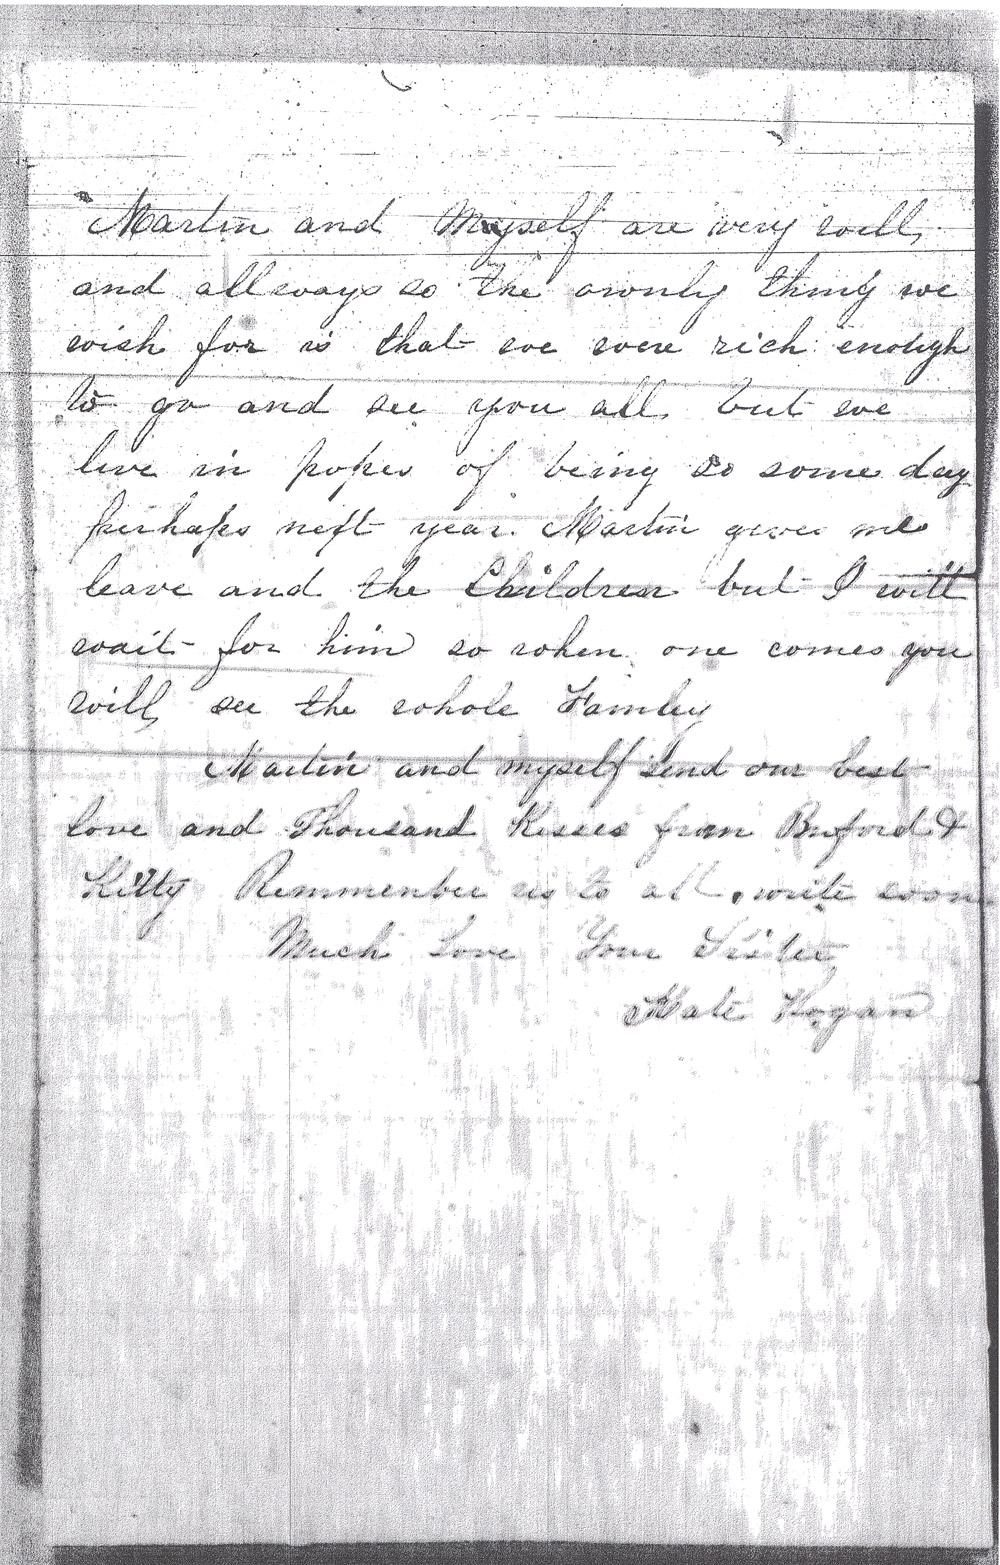 Martin and Myself are very well,
and allways so the ownly thing we
wish for is that we were rich enough
to go and see you all, but we
live in hopes of being so some day
perhaps neft year. Martin gives me
leave and the Children but I will
wait for him so when one comes you
will see the whole Famley
Martin and myself Send our best
love and Thousand Kisses from Buford &
Kitty Remmember us to all. write soon
Much Love Your Sister
Kate Hogan